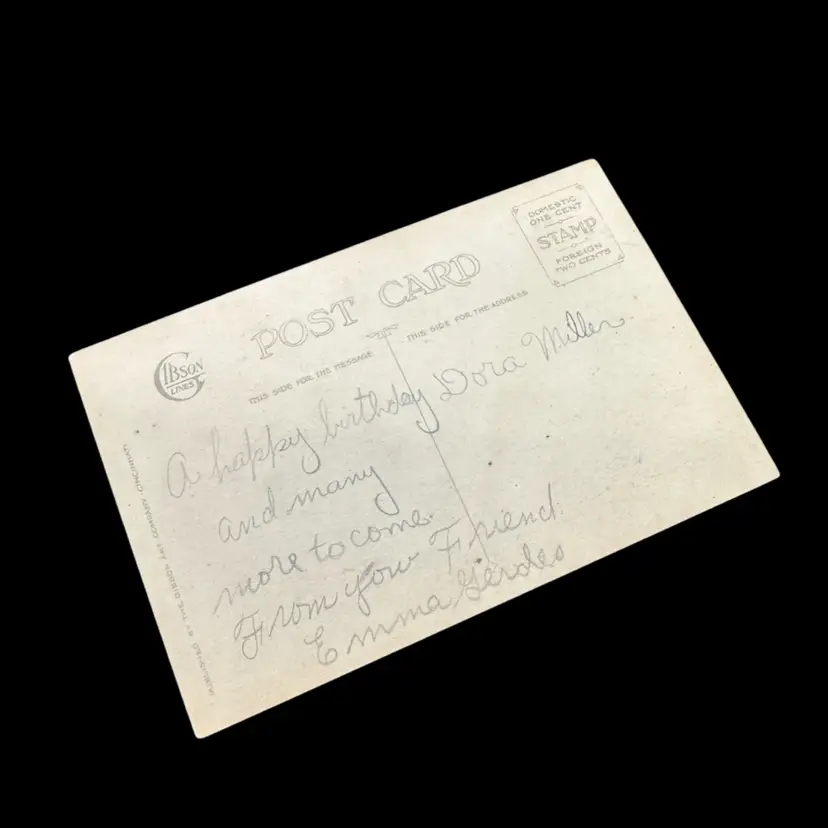 POST CARD
DOMESTIC
ONE CENT
STAMP
FOREIGN
TWO CENTS
GIBSON
LINES
THIS SIDE FOR THE MESSAGE
THIS SIDE FOR THE ADDRESS
A happy birthday Dora Miller
and many
more to come.
From your Friend
Emma Gerdes
PUBLISHED BY THE GIBSON ART COMPANY, CINCINNATI.